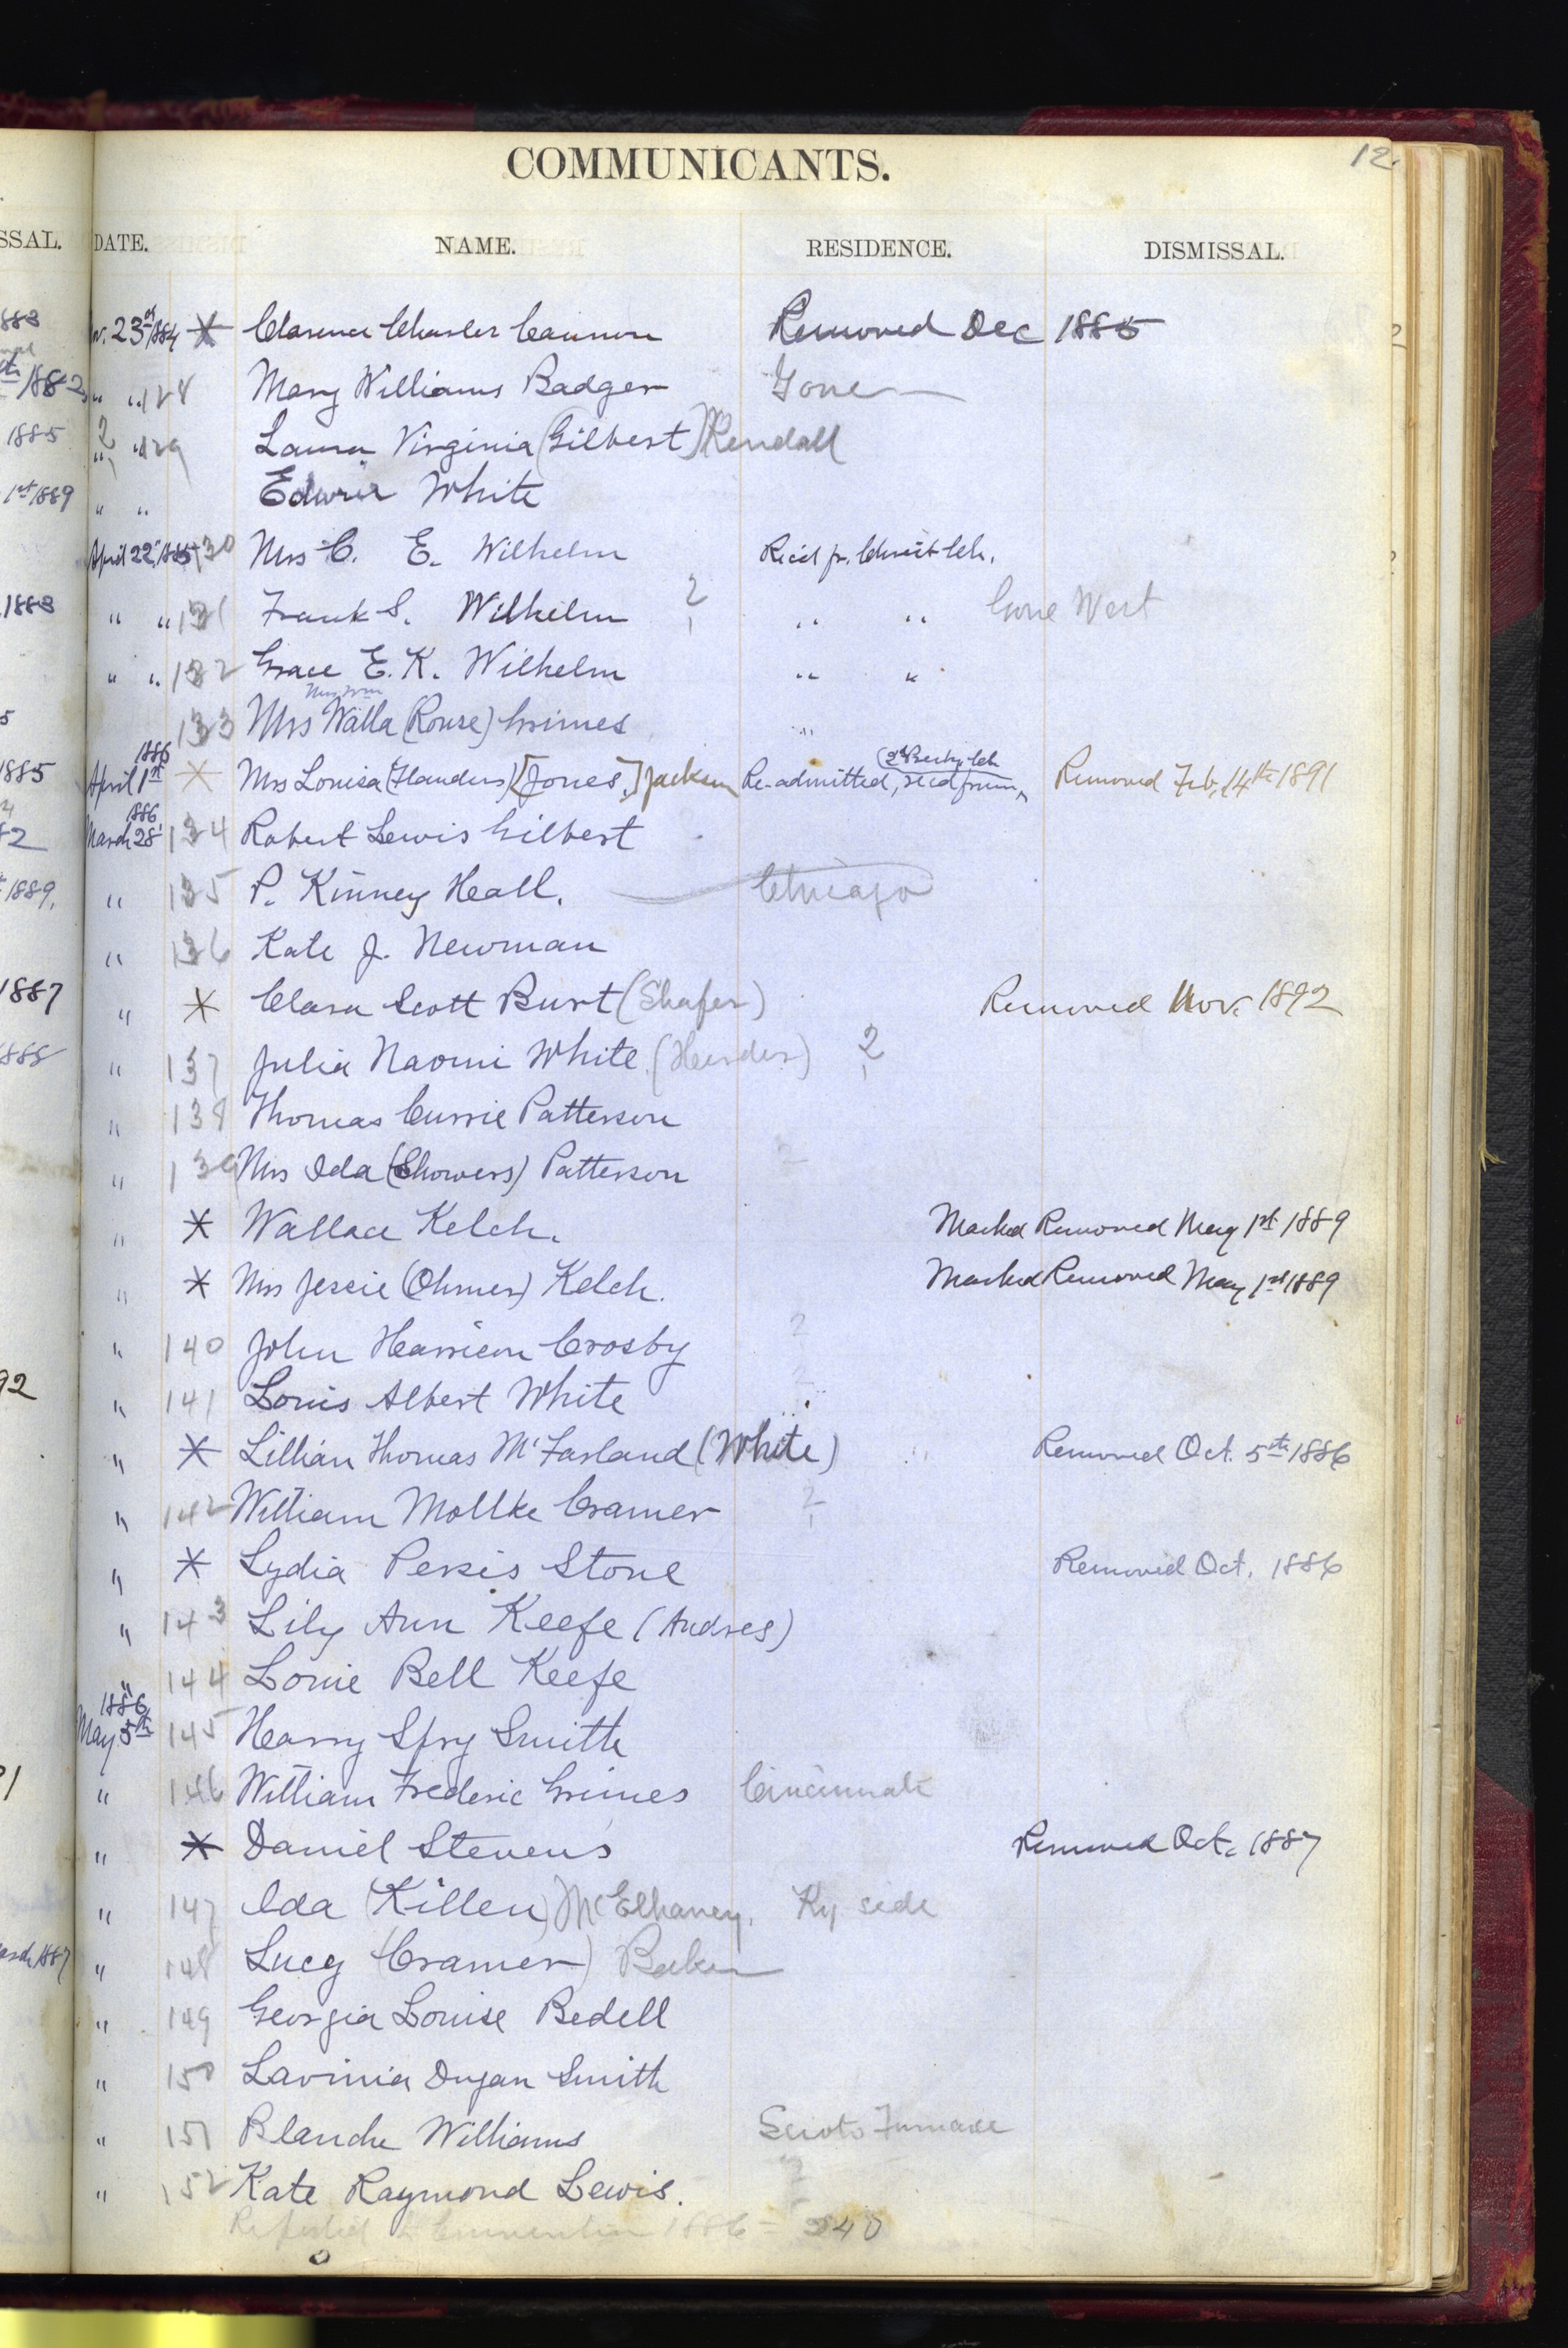 COMMUNICANTS. 12.
SSAL. DATE. NAME. RESIDENCE. DISMISSAL.
23rd 1884 * Clarence Charles Cannon Removed Dec 1885
" " 128 Mary Williams Badger Gone
" " 129 Laura Virginia (Gilbert) Kendall
" " Edwin White
April 22, 1885 130 Mrs C. E. Wilhelm Rec'd fr. Christ Ch.
" " 131 Frank S. Wilhelm ? " " Gone West
" " 132 Grace E. K. Wilhelm " "
Mrs Wm
133 Mrs Walla (Rouse) Grimes "
1886
April 1st * Mrs Louisa (Flanders) [Jones,] Jackson Re-admitted, rec'd from Removed Feb. 14th 1891
1886
March 28 134 Robert Lewis Gilbert
" 135 P. Kinney Heall. Chicago
" 136 Kate J. Newman
" * Clara Scott Burt (Shafer) Removed Nov. 1892
" 137 Julia Naomi White ?
" 138 Thomas Currie Patterson
" 139 Mrs Ida (Showers) Patterson ?
" * Wallace Kelch. Marked Removed May 1st 1889
" * Mrs Jessie (Ohmer) Kelch. Marked Removed May 1st 1889
" 140 John Harrison Crosby ?
" 141 Louis Albert White
" * Lillian Thomas McFarland (White) Removed Oct. 5th 1886
" 142 William Moltke Cramer ?
" * Lydia Persis Stone Removed Oct. 1886
" 143 Lily Ann Keefe (Andres)
" 144 Louie Bell Keefe
1886
May 5th 145 Harry Spry Smith
" 146 William Frederic Grimes Cincinnati
" * Daniel Stevens Removed Oct. 1887
" 147 Ida (Killen) McElhaney. Ky side
" 148 Lucy (Cramer) Baker
" 149 Georgia Louise Bedell
" 150 Lavinia Dugan Smith
" 151 Blanche Williams Scioto Furnace
" 152 Kate Raymond Lewis. ?
Reported to Convention 1886 = 240